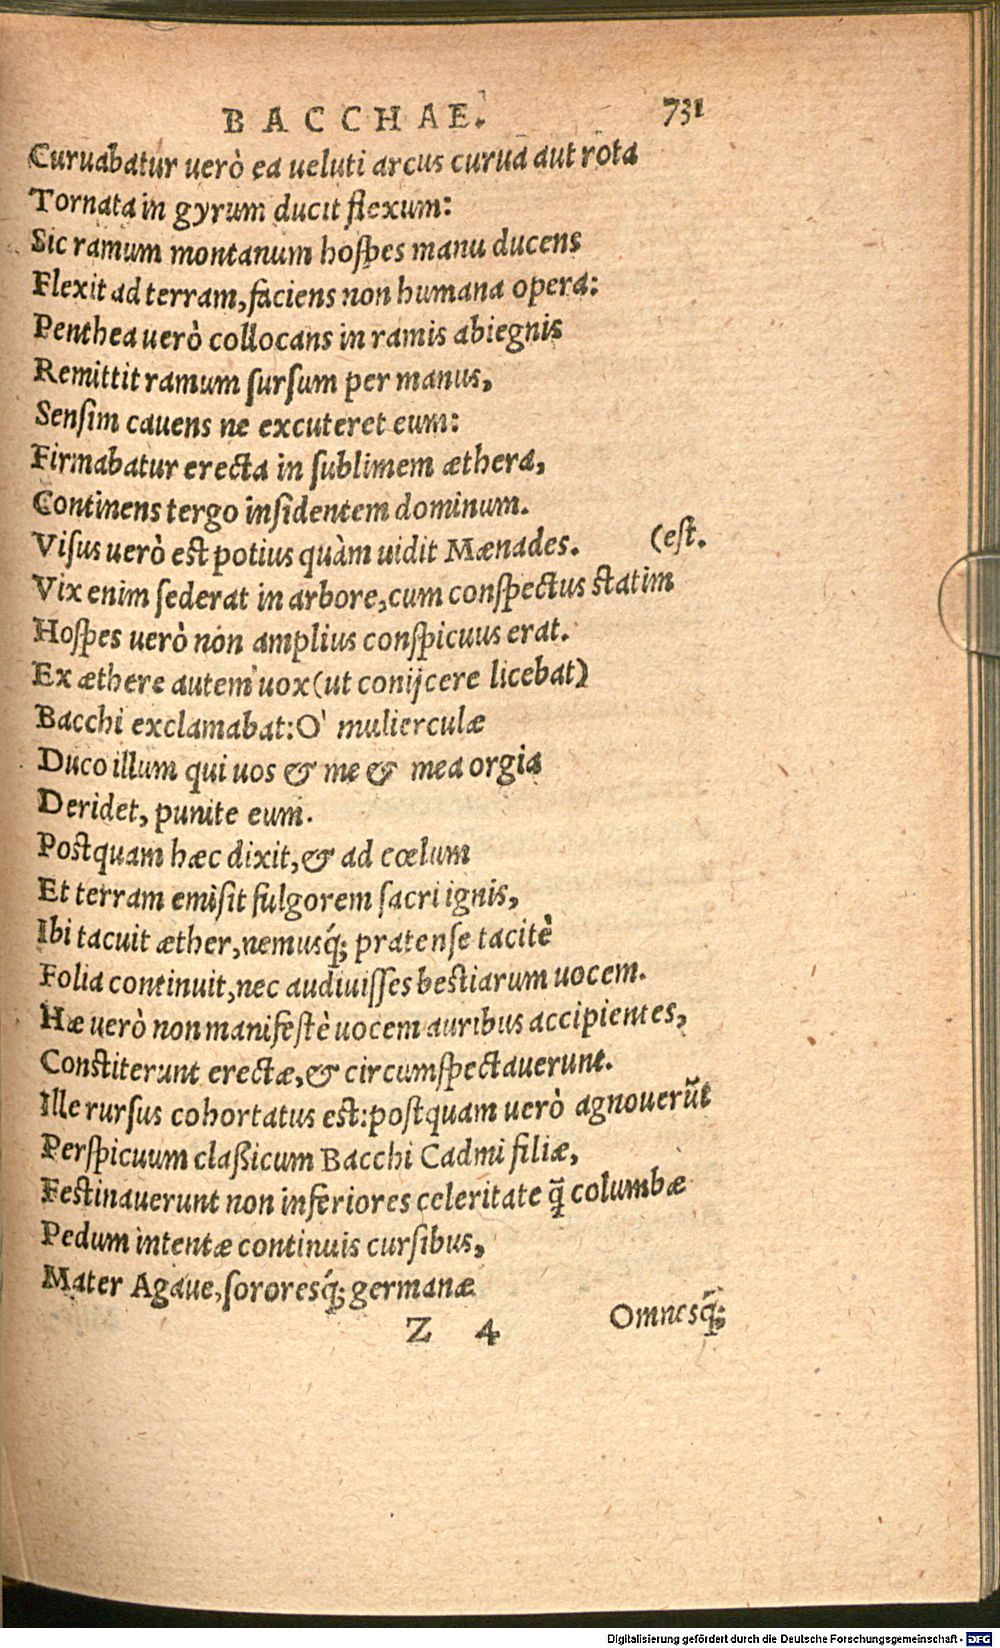 BACCHAE. 731
Curuabatur uerò ea ueluti arcus curua aut rota
Tornata in gyrum ducit flexum:
Sic ramum montanum hospes manu ducens
Flexit ad terram, faciens non humana opera:
Penthea uerò collocans in ramis abiegnis
Remittit ramum sursum per manus,
Sensim cauens ne excuteret eum:
Firmabatur erecta in sublimem æthera,
Continens tergo insidentem dominum.
Visus uerò est potius quàm uidit Mænades. (est.
Vix enim sederat in arbore, cum conspectus statim
Hospes uerò non amplius conspicuus erat.
Ex æthere autem uox (ut conijcere licebat)
Bacchi exclamabat: O' mulierculæ
Duco illum qui uos & me & mea orgia
Deridet, punite eum.
Postquam hæc dixit, & ad cœlum
Et terram emisit fulgorem sacri ignis,
Ibi tacuit æther, nemusq́; pratense tacitè
Folia continuit, nec audiuisses bestiarum uocem.
Hæ uerò non manifestè uocem auribus accipientes,
Constiterunt erectæ, & circumspectauerunt.
Ille rursus cohortatus est: postquam uerò agnouerũt
Perspicuum claßicum Bacchi Cadmi filiæ,
Festinauerunt non inferiores celeritate q̃ columbæ
Pedum intentæ continuis cursibus,
Mater Agaue, sororesq́; germanæ
Z 4 Omnesq́;
Digitalisierung gefördert durch die Deutsche Forschungsgemeinschaft - DFG